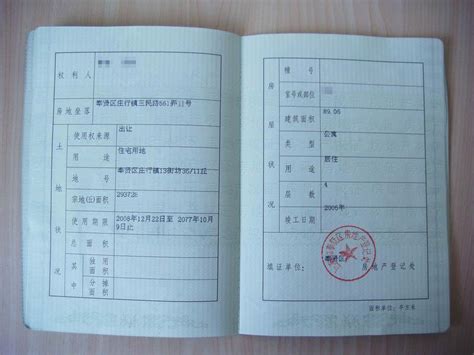 权利人
房地坐落
奉贤区庄行镇三民路661弄11号
土地状况
使用权来源
出让
用途
住宅用地
奉贤区庄行镇13街坊36/11丘
宗地(丘)面积
使用期限
2008年12月22日至2077年10月9日止
总面积
其中
独用面积
分摊面积
房屋状况
幢号
室号或部位
建筑面积
89.06
类型
公寓
用途
居住
层数
4
竣工日期
2005年
填证单位:
奉贤区
房地产登记处
面积单位:平方米